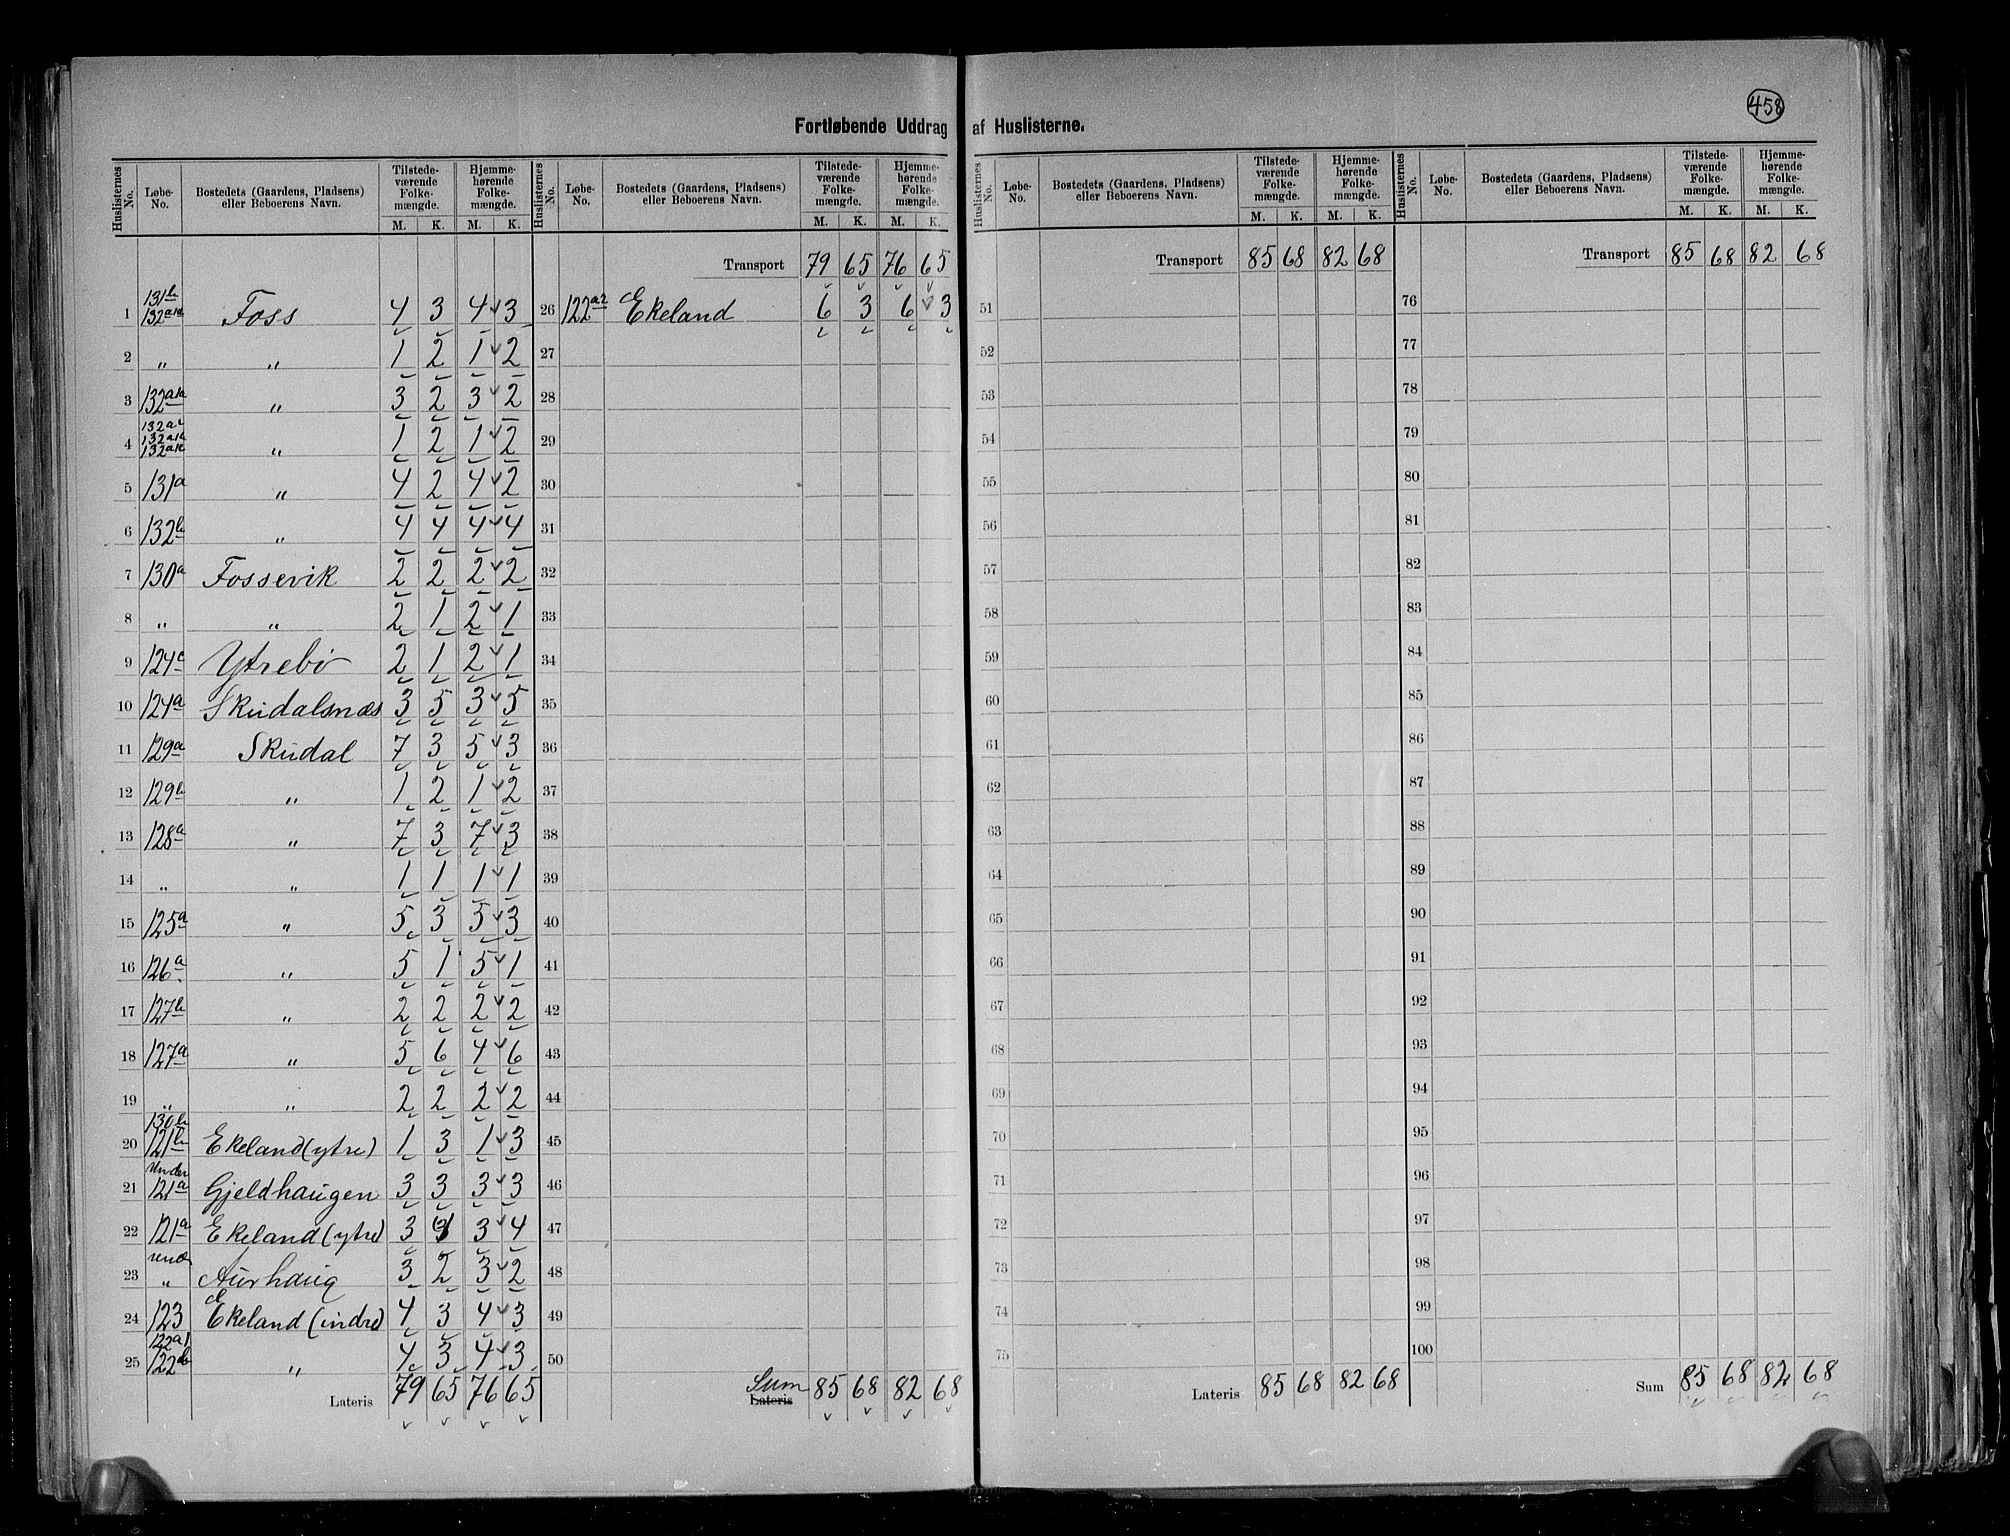 458
Fortløbende Uddrag af Huslisterne.
Huslisternes No. | Løbe-No. | Bostedets (Gaardens, Pladsens) eller Beboerens Navn. | Tilstedeværende Folkemængde. M. K. | Hjemmehørende Folkemængde. M. K.
1 | 131b 132a1a | Foss | 4 | 3 | 4 | 3
2 | „ | „ | 1 | 2 | 1 | 2
3 | 132a1a | „ | 3 | 2 | 3 | 2
4 | | „ | 1 | 2 | 1 | 2
5 | 131a | „ | 4 | 2 | 4 | 2
6 | 132b | „ | 4 | 4 | 4 | 4
7 | 130a | Fossevik | 2 | 2 | 2 | 2
8 | „ | „ | 2 | 1 | 2 | 1
9 | 124c | Ytrebø | 2 | 1 | 2 | 1
10 | 124a | Skudalsnæs | 3 | 5 | 3 | 5
11 | 129a | Skudal | 7 | 3 | 5 | 3
12 | 129b | „ | 1 | 2 | 1 | 2
13 | 128a | „ | 7 | 3 | 7 | 3
14 | „ | „ | 1 | 1 | 1 | 1
15 | 125a | „ | 5 | 3 | 5 | 3
16 | 126a | „ | 5 | 1 | 5 | 1
17 | 127b | „ | 2 | 2 | 2 | 2
18 | 127a | „ | 5 | 6 | 4 | 6
19 | „ | „ | 2 | 2 | 2 | 2
20 | 130b 121b | Ekeland (ytre) | 1 | 3 | 1 | 3
21 | under 121a | Gjeldhaugen | 3 | 3 | 3 | 3
22 | 121a | Ekeland (ytre) | 3 | 4 | 3 | 4
23 | und. „ | Aurhaug | 3 | 2 | 3 | 2
24 | 123 | Ekeland (indre) | 4 | 3 | 4 | 3
25 | 122a1 122b | „ | 4 | 3 | 4 | 3
Lateris | 79 | 65 | 76 | 65
Huslisternes No. | Løbe-No. | Bostedets (Gaardens, Pladsens) eller Beboerens Navn. | Tilstedeværende Folkemængde. M. K. | Hjemmehørende Folkemængde. M. K.
Transport | 79 | 65 | 76 | 65
26 | 122a2 | Ekeland | 6 | 3 | 6 | 3
27
28
29
30
31
32
33
34
35
36
37
38
39
40
41
42
43
44
45
46
47
48
49
50
Sum Lateris | 85 | 68 | 82 | 68
Huslisternes No. | Løbe-No. | Bostedets (Gaardens, Pladsens) eller Beboerens Navn. | Tilstedeværende Folkemængde. M. K. | Hjemmehørende Folkemængde. M. K.
Transport | 85 | 68 | 82 | 68
51
52
53
54
55
56
57
58
59
60
61
62
63
64
65
66
67
68
69
70
71
72
73
74
75
Lateris | 85 | 68 | 82 | 68
Huslisternes No. | Løbe-No. | Bostedets (Gaardens, Pladsens) eller Beboerens Navn. | Tilstedeværende Folkemængde. M. K. | Hjemmehørende Folkemængde. M. K.
Transport | 85 | 68 | 82 | 68
76
77
78
79
80
81
82
83
84
85
86
87
88
89
90
91
92
93
94
95
96
97
98
99
100
Sum | 85 | 68 | 82 | 68